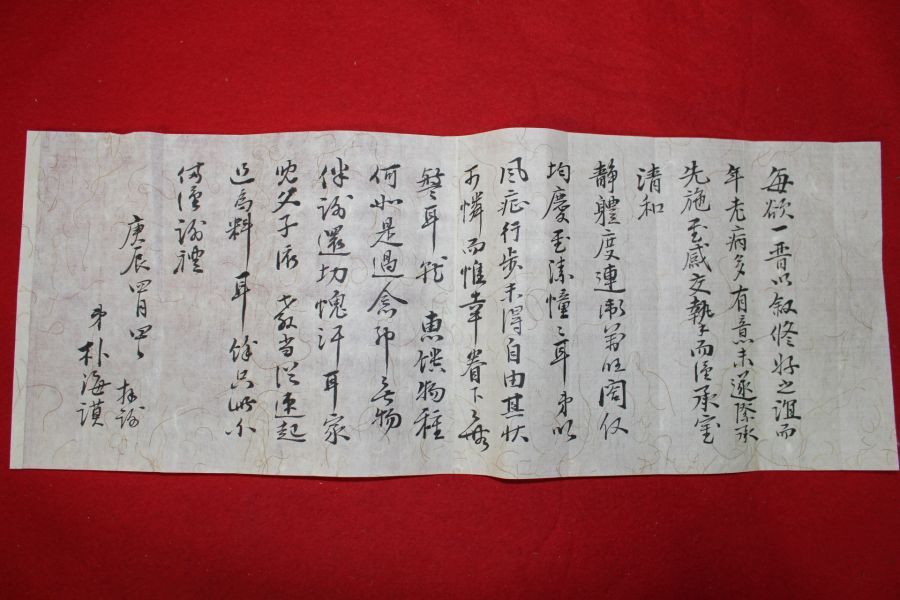 每欲一晋以叙修好之誼而
年老病多有意未遂際承
先施至感交執而謹承審
清和
静體度連衛萬旺閤仪
均慶至溸憧〻耳弟以
風症行步未得自由其狀
可憐而惟幸眷下
耳 惠饋物種
何如是過念耶無物
伴謝還切愧汗耳家
兒父子依 教當從速起
送爲料耳 餘只此不
備謹謝禮
庚辰四月四 拜謝
弟朴海